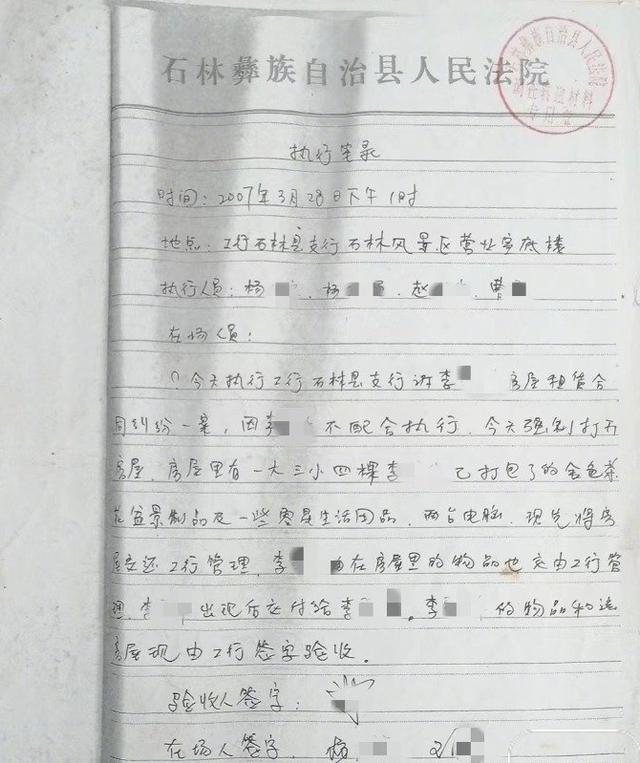 石林彝族自治县人民法院
执行笔录
时间：2007年3月28日下午1时
地点：工行石林县支行石林风景区营业室底楼
执行人员：杨 、杨 、赵 、曹
在场人员：
今天执行工行石林县支行诉李 房屋租赁合
同纠纷一案，因李 不配合执行，今天强制打开
房屋，房屋里有一大三小四棵李 已打包了的金色茶
花盆景制品及一些零星生活用品，两台电脑，现先将房
屋交还工行管理，李 在房屋里的物品也交由工行管
理，李 出现后交付给李 。李 的物品和这
房屋现由工行签字验收。
验收人签字：
在场人签字 杨